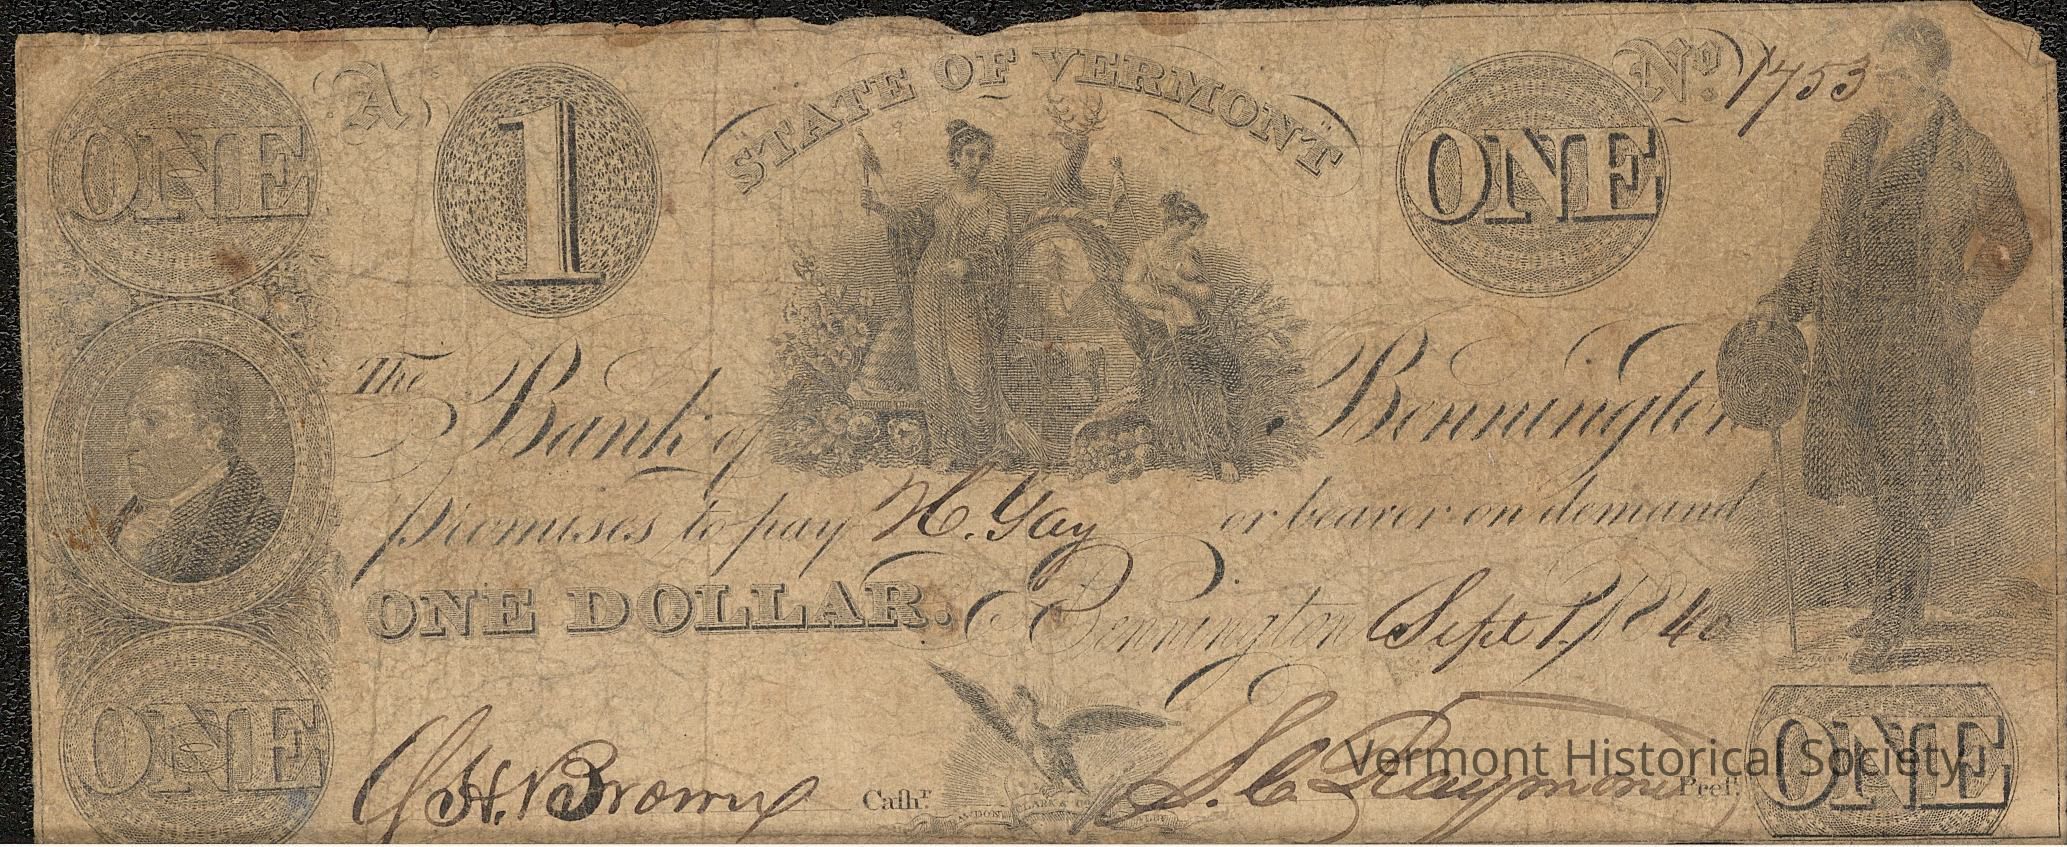 ONE
A
1
STATE OF VERMONT
ONE
No. 1753
The Bank of Bennington
promises to pay H. Gay or bearer on demand
ONE DOLLAR. Bennington Sept 1, 1840
ONE
J. H. Brown Cashr.
CLARK & CO
S. C. Raymond Prest.
ONE
Vermont Historical Society